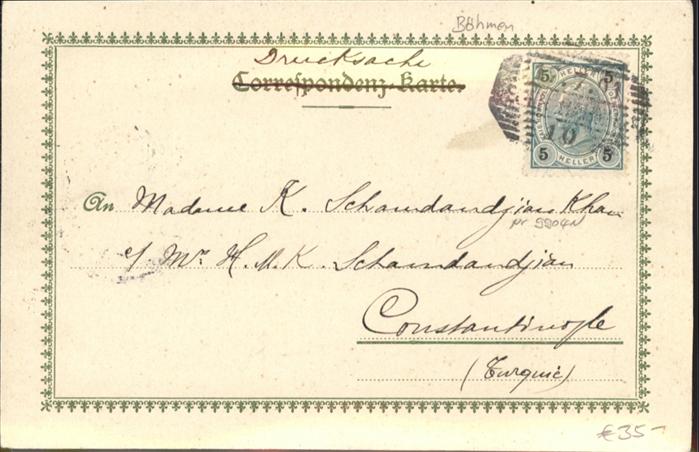 Böhmen
Drucksache
Correspondenz-Karte.
5 HELLER 5
10
5 HELLER 5
An Madame K. Schamdandjian Khan
pr
c/ Mr H. M. K. Schamdandjian
Constantinople
(Turquie)
€35-